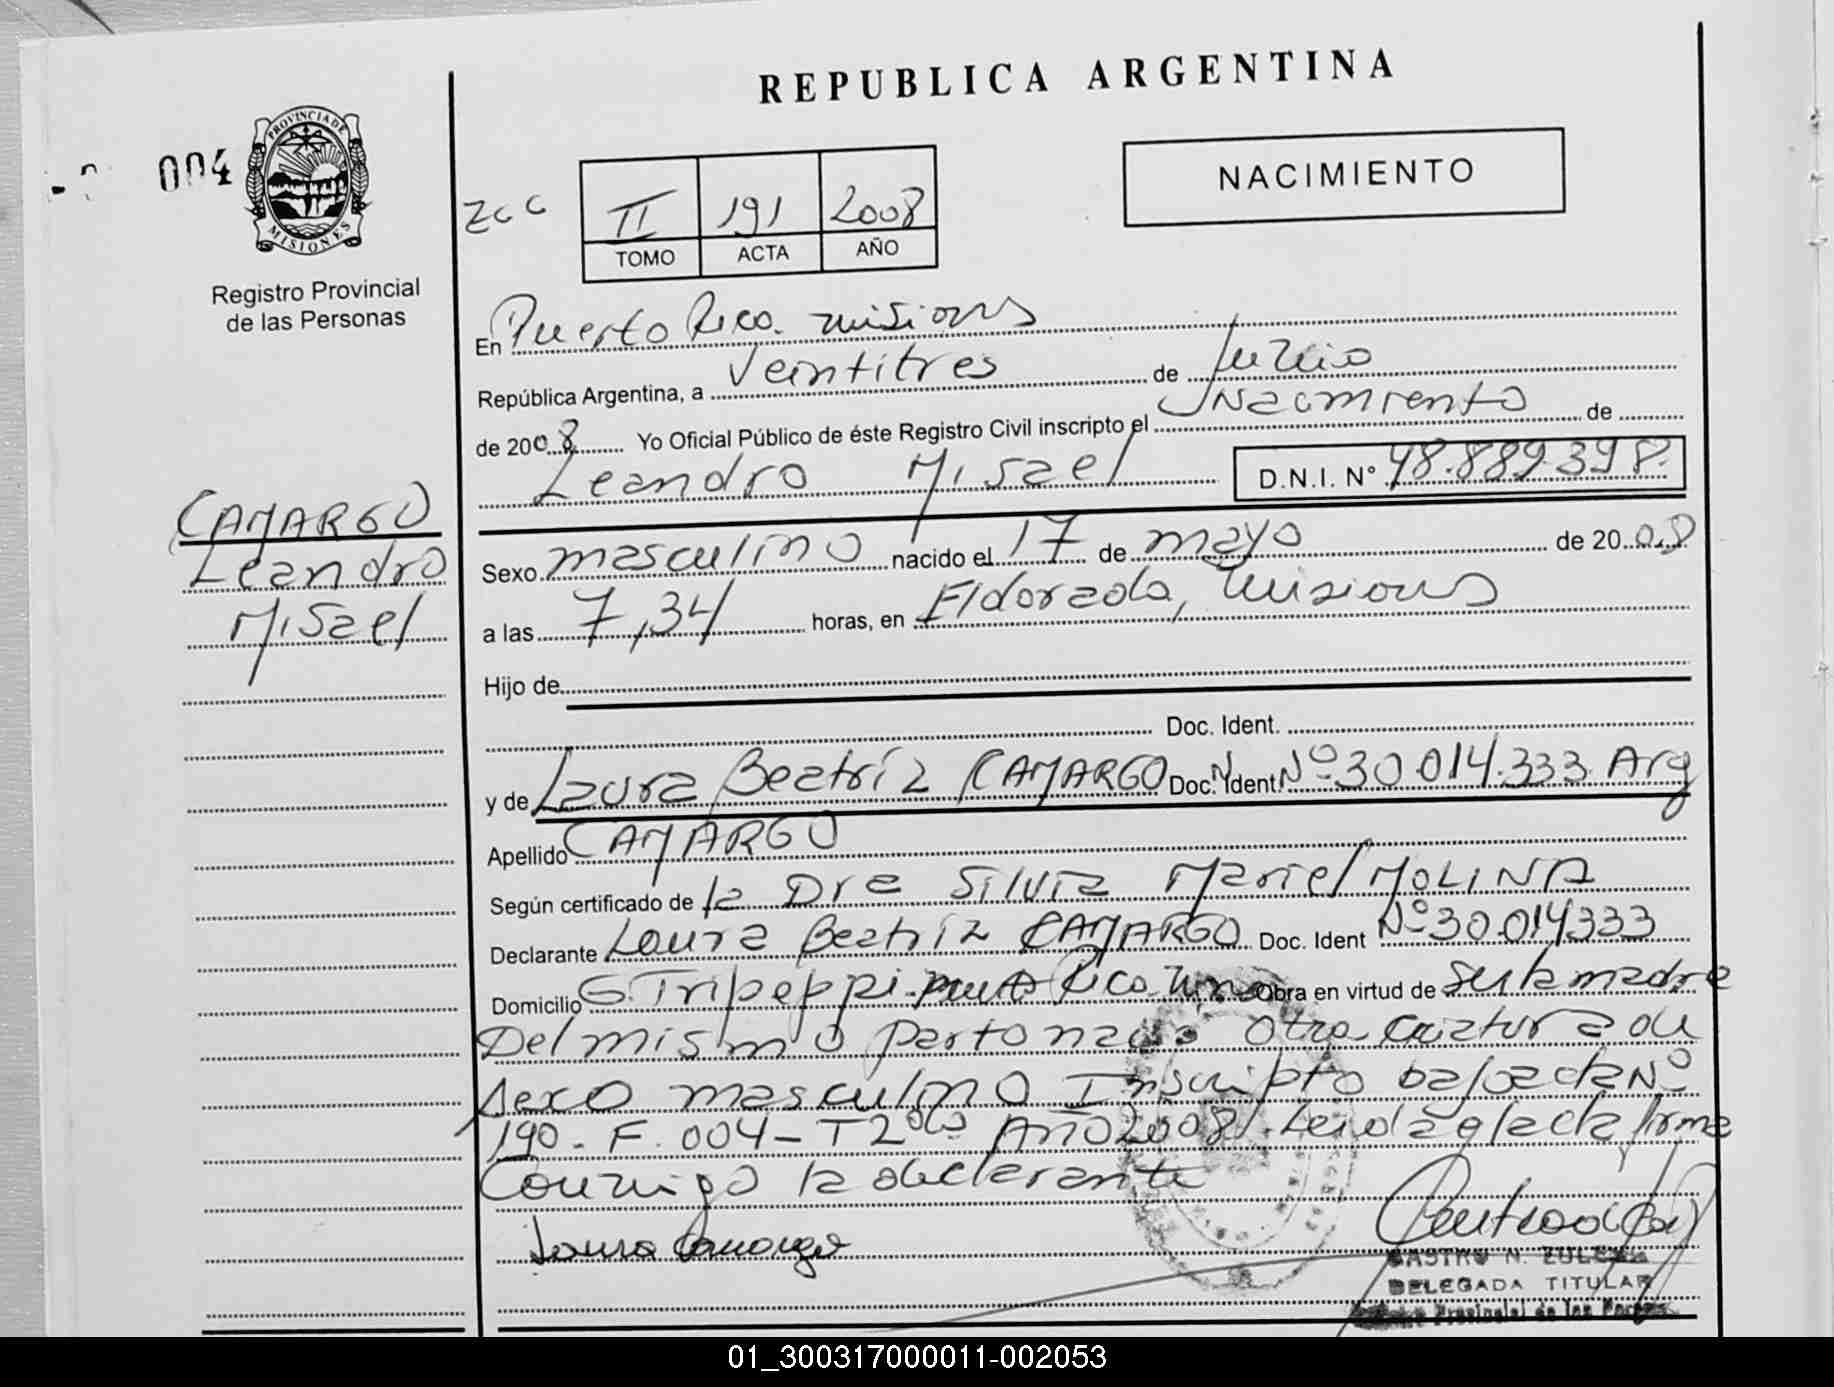 REPUBLICA ARGENTINA
004
PROVINCIA DE
MISIONES
Registro Provincial
de las Personas
II 191 2008
TOMO ACTA AÑO
NACIMIENTO
En Puerto Rico. misiones
República Argentina, a Veintitres de Junio
de 2008 Yo Oficial Público de éste Registro Civil inscripto el Nacimiento de
Leandro Misael D.N.I. Nº 48.889.398.
CAMARGO
Leandro
Misael
Sexo masculino nacido el 17 de mayo de 2008
a las 7,34 horas, en Eldorado, misiones
Hijo de
Doc. Ident.
y de Laura Beatríz CAMARGO Doc. Ident Nº 30.014.333 Arg
Apellido CAMARGO
Según certificado de la Dra Silvia Mariel MOLINA
Declarante Laura Beatríz CAMARGO Doc. Ident Nº 30.014333
Domicilio G. Tripeppi. Puerto Rico Obra en virtud de ser la madre
Del mismo parto nacio otra criatura de
sexo masculino Inscripto bajo acta Nº
190 - F. 004 - T 2º Año 2008. Leida el acta firma
Conmigo la declarante
Laura Camargo
CASTRO N. ZULEMA
DELEGADA TITULAR
Provincial de las Person
01_300317000011-002053